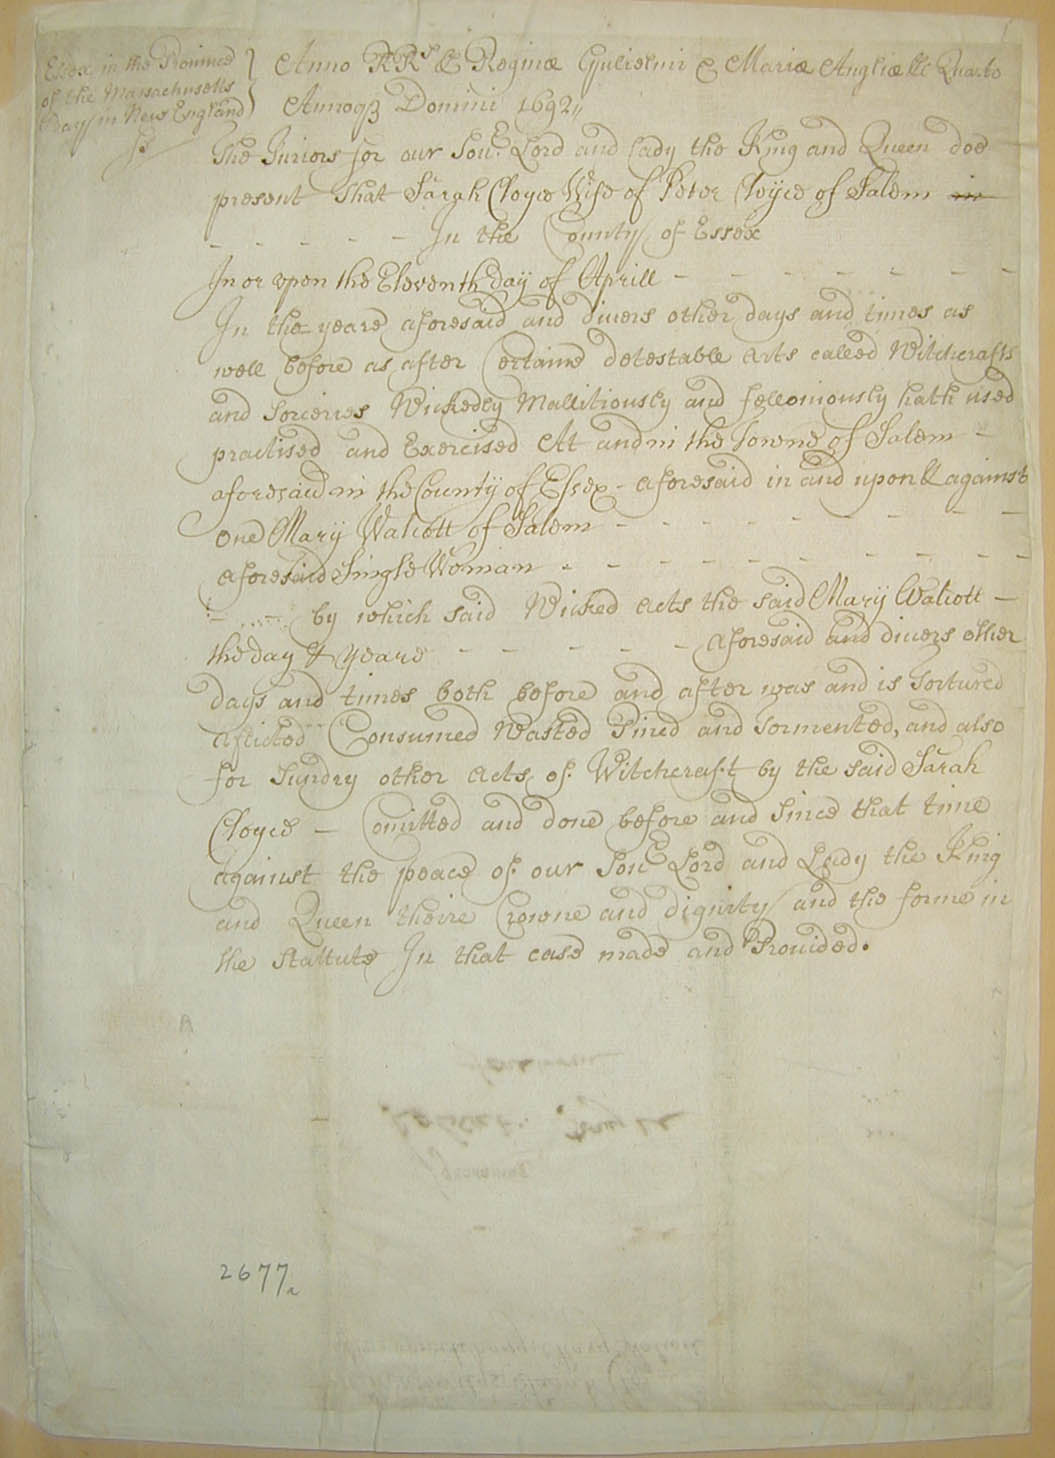 Essex in the Province
of the Massachusetts
Bay in New England
Anno RRs & Reginæ Gulielmi & Mariæ Angliæ &c Quarto
Annoq3 Domini 1692
The Juriors for our Soue. Lord and lady the King and Queen doe
present That Sarah Cloyce Wife of Peter Cloyce of Salem in
- - - - - In the County of Essex
In or vpon the Eleventh day of Aprill - - - - - - -
In the yeare aforesaid and divers other days and times as
well before as after Certaine detestable Arts called Witchcrafts
and Sorceries Wickedly Mallitiously and felloniously hath used
practised and Exercised At and in the Towne of Salem -
aforesaid in the County of Essex - aforesaid in and upon & against
one Mary Walcott of Salem - - - - - - - -
aforesaid Single Woman - - - - - - - - - -
- by which said Wicked acts the said Mary Walcott -
the day & yeare - - - - - - aforesaid and divers other
days and times both before and after was and is Tortured
aflicted Consumed Wasted Pined and Tormented, and also
for Sundry other Acts of Witchcraft by the said Sarah
Cloyce - Comitted and done before and Since that time
against the peace of our Soue Lord and Lady the King
and Queen theire Crowne and dignity and the forme in
the Stattute In that case made and Prouided.
2677a